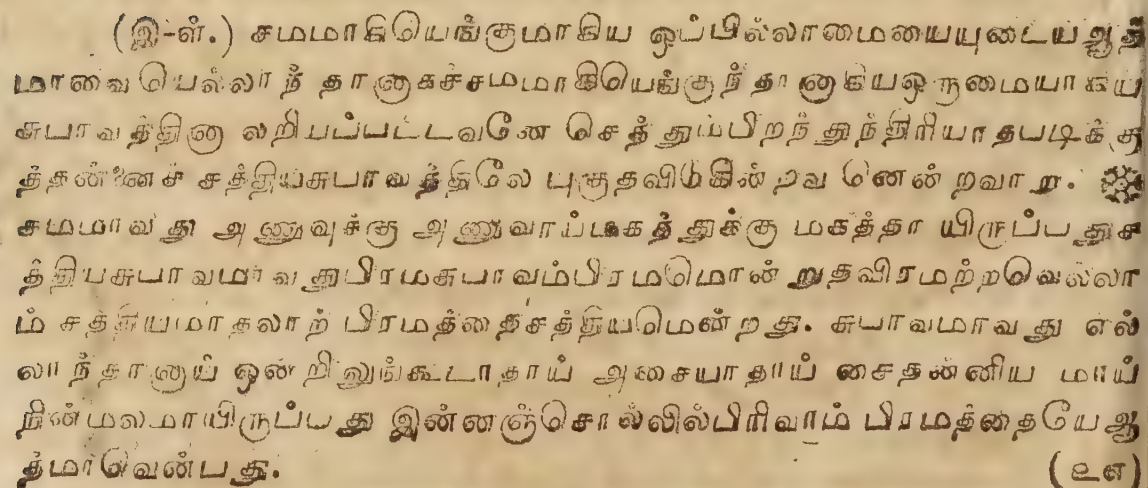 (இ-ள்.) சமமாகியெங்குமாகிய ஒப்பில்லாமையையுடைய ஆத்
மாவை யெல்லாந் தானாகச்சமமாகியெங்குந்தானாகியஒருமையாகிய
சுபாவத்தினா லறியப்பட்டவனே செத்தும்பிறந்துந்திரியாதபடிக்கு
த்தன்னைச் சத்தியசுபாவத்திலே புகுதவிடுகின்றவ னென்றவாறு. ❁
சமமாவது அணுவுக்கு அணுவாய்மகத்துக்கு மகத்தா யிருப்பதுச
த்தியசுபாவமாவதுபிரமசுபாவம்பிரமமொன்றுதவிரமற்றவெல்லா
ம் சத்தியமாதலாற் பிரமத்தைசத்தியமென்றது. சுபாவமாவது எல்
லாந்தானாய் ஒன்றிலுங்கூடாதாய் அசையாதாய் சைதன்னிய மாய்
நின்மலமாயிருப்பது இன்னஞ்சொல்லில்பிரிவாம் பிரமத்தையேஆ
த்மாவென்பது. (உஎ)